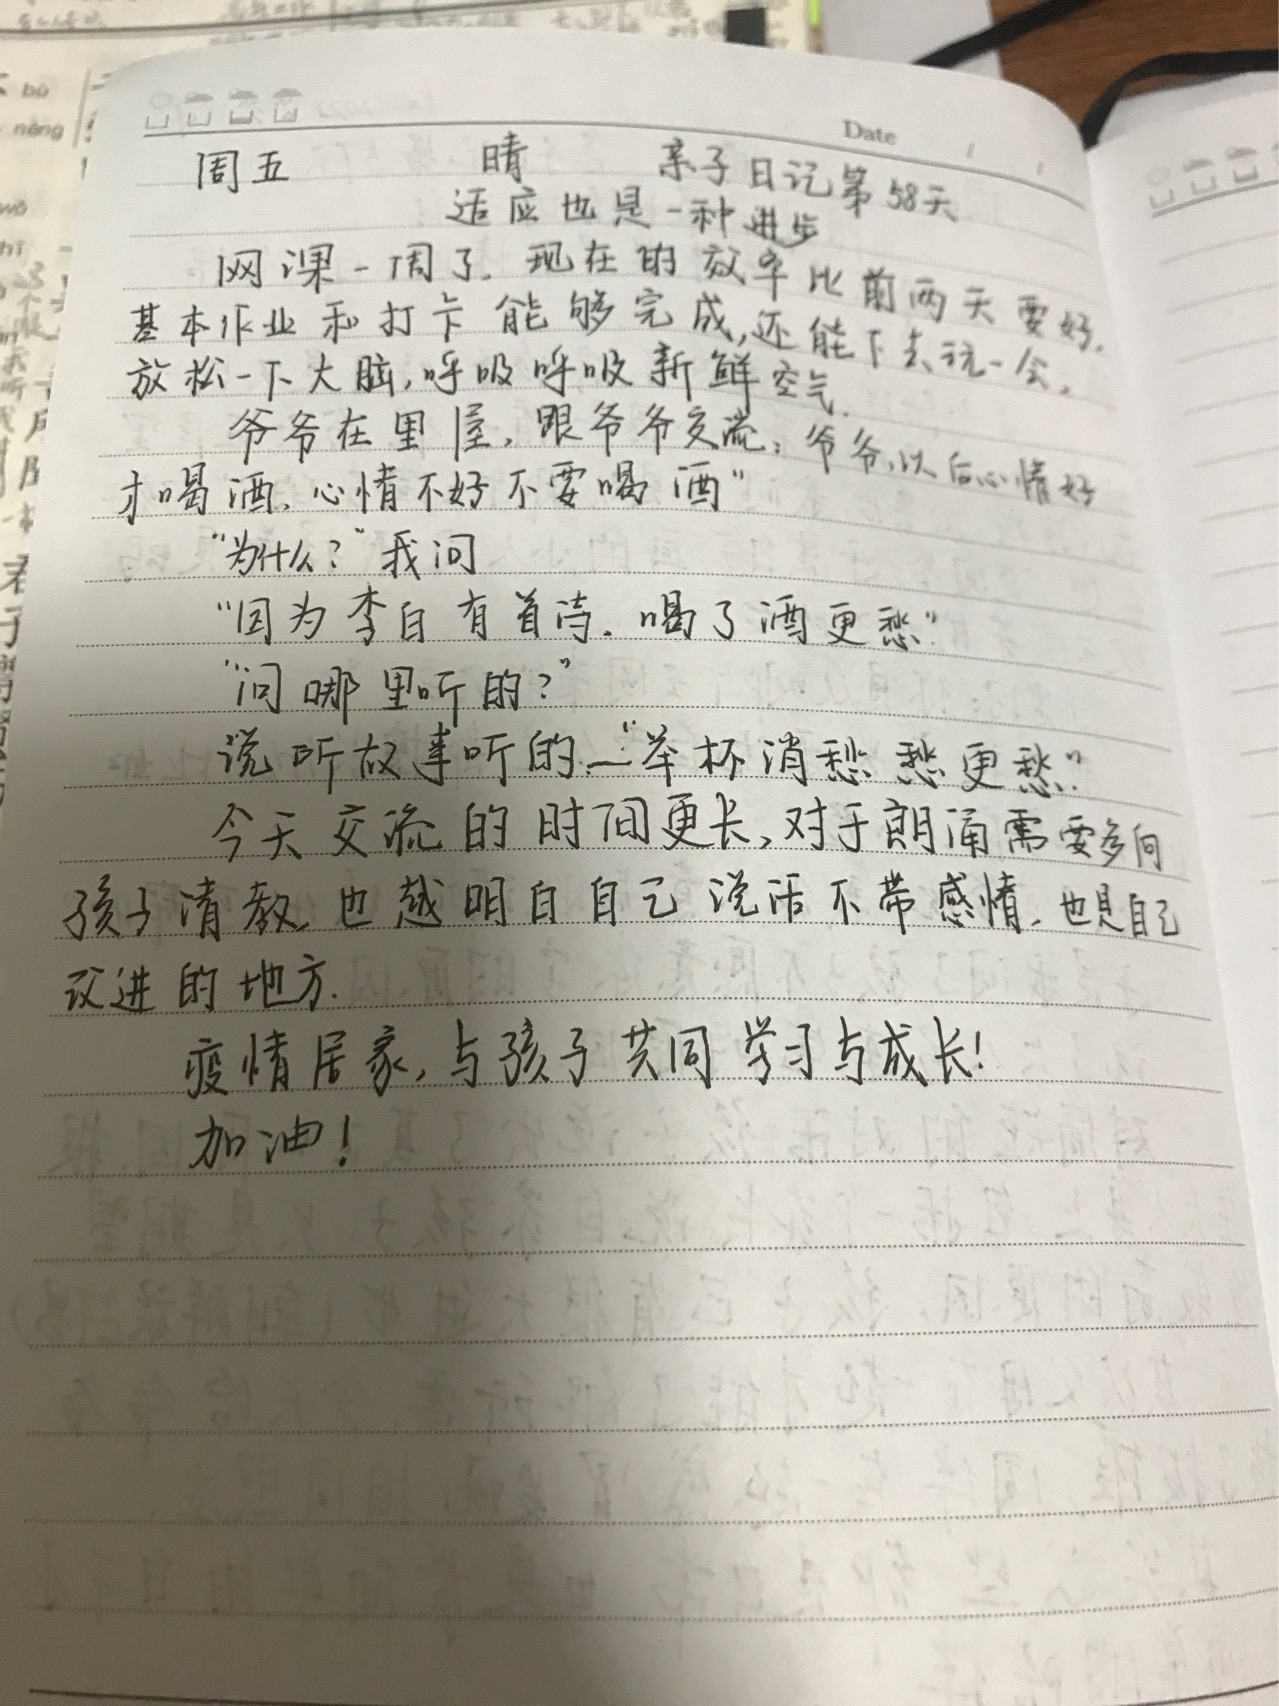 Date
周五 晴 亲子日记第58天
适应也是一种进步
网课一周了.现在的效率比前两天要好.
基本作业和打卡能够完成,还能下去玩一会,
放松一下大脑,呼吸呼吸新鲜空气.
爷爷在里屋,跟爷爷交流:爷爷,以后心情好
才喝酒,心情不好不要喝酒"
"为什么?"我问
"因为李白有首诗.喝了酒更愁"
"问哪里听的?"
说听故事听的."举杯消愁愁更愁"
今天交流的时间更长,对于朗诵需要多向
孩子请教,也越明白自己说话不带感情,也是自己
改进的地方.
疫情居家,与孩子共同学习与成长!
加油!
bù
néng
wǒ